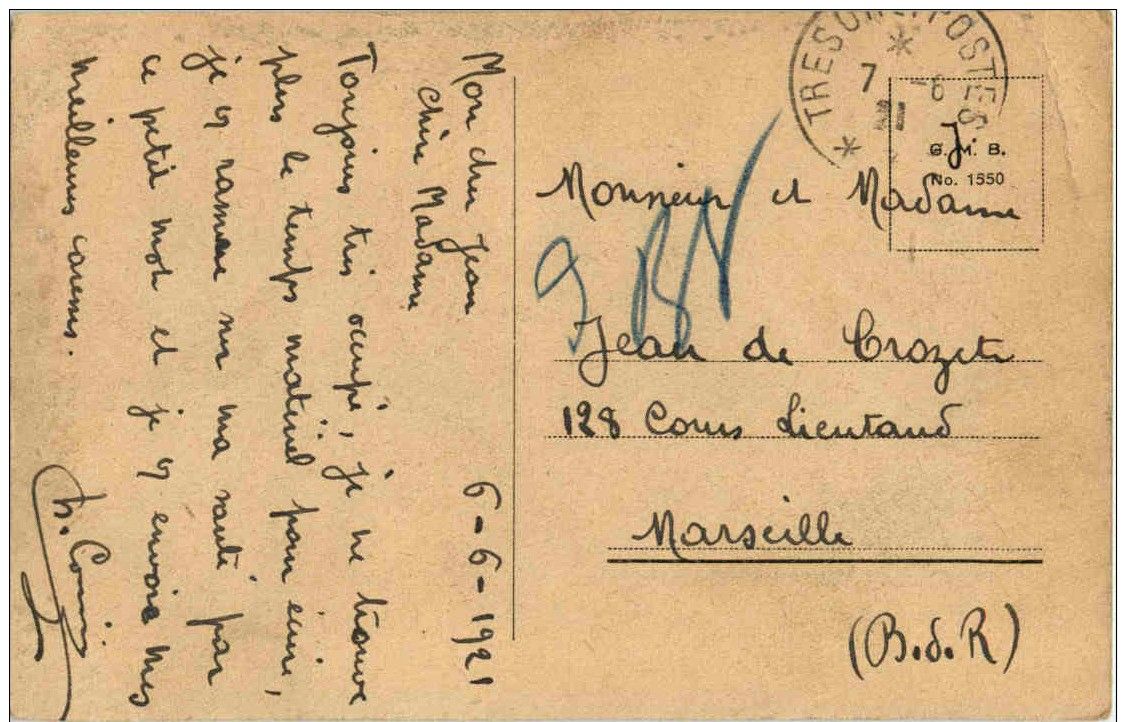 Mon cher Jean 6-6-1921
Chère Madame
Toujours très occupé, je ne trouve
plus le temps matériel pour écrire,
je vs rassure sur ma santé par
ce petit mot et je vs envoie mes
meilleures caresses.
TRESOR POSTES
* 7 -6 21 *
G. M. B.
No. 1550
Monsieur et Madame J.
Jean de Crozet
128 Cours Lieutaud
Marseille
(B.d.R)